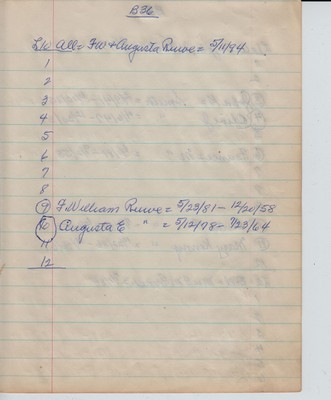 B36
Lto All = FW + Augusta Ruwe = 5/11/94
1
2
3
4
5
6
7
8
9 F. William Ruwe = 5/23/81 - 12/20/58
10 Augusta E " = 5/12/78 - 7/23/64
11
12